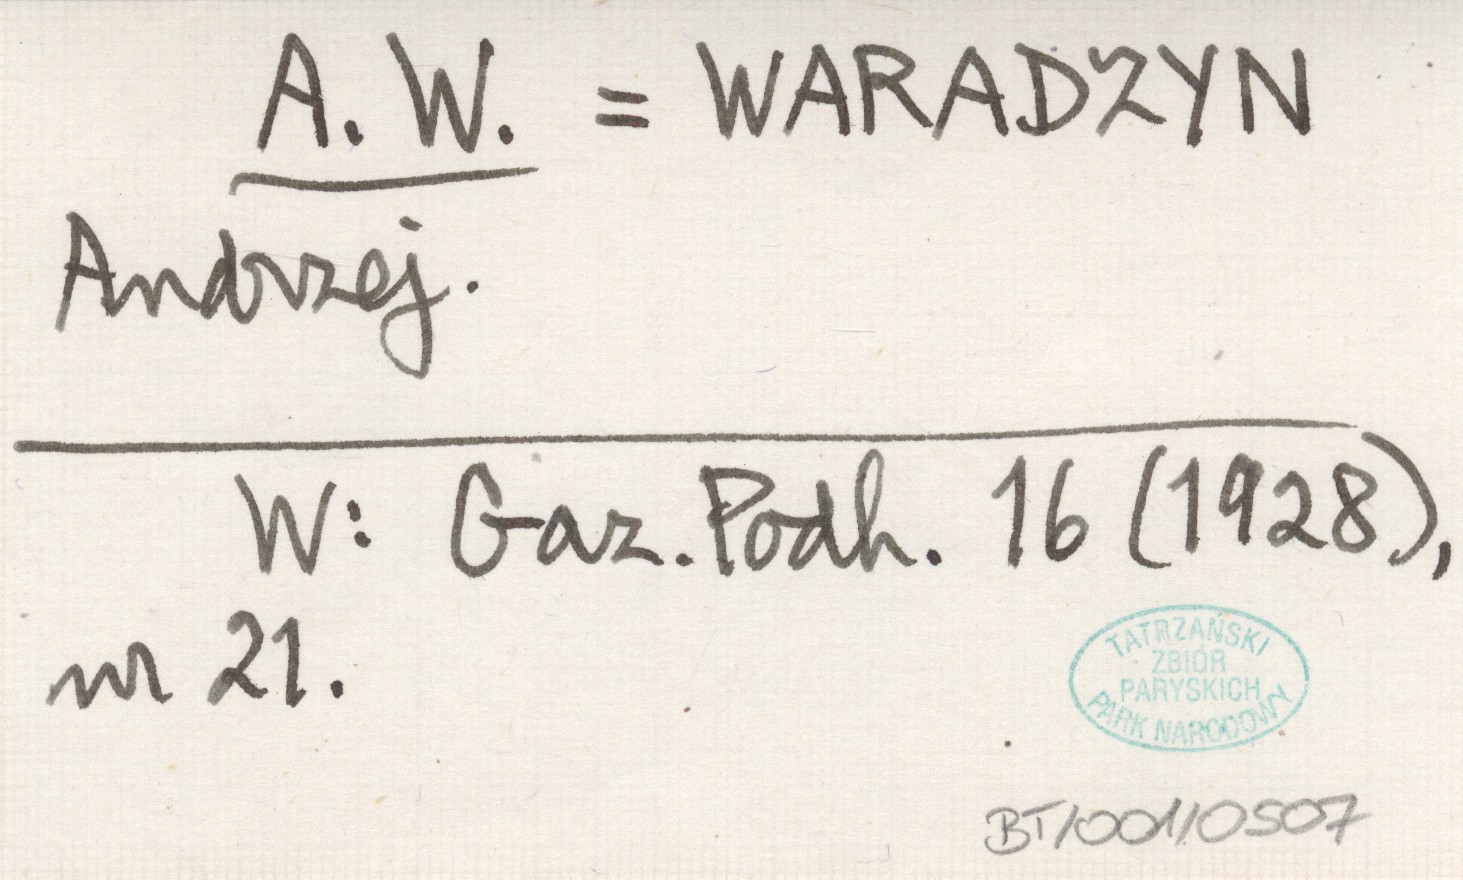 A. W. = WARADZYN
Andrzej.
W: Gaz. Podh. 16 (1928),
nr 21.
TATRZAŃSKI
ZBIÓR
PARYSKICH
PARK NARODOWY
BT/001/0507